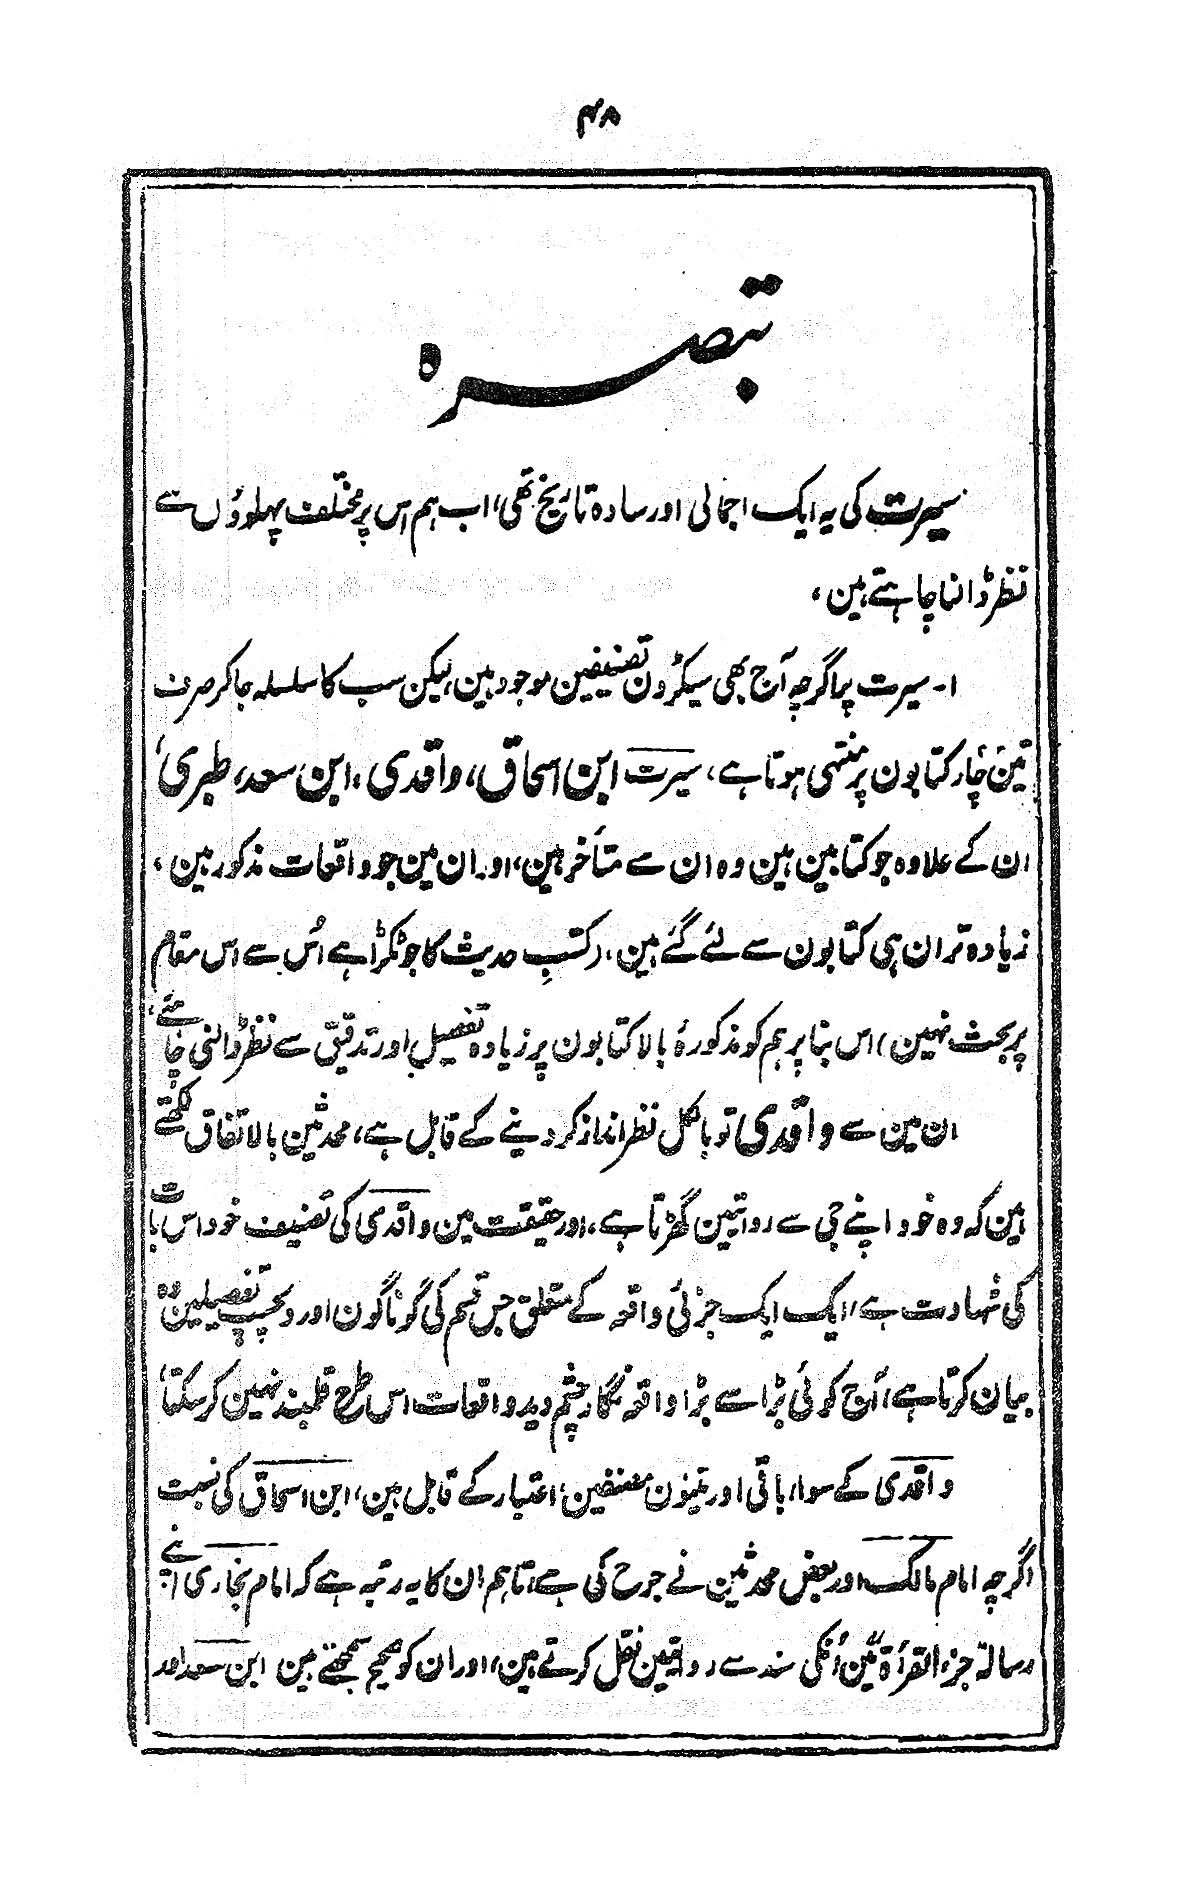 ۴۸
تبصرہ
سیرت کی یہ ایک اجمالی اور سادہ تاریخ تھی، اب ہم اس پر مختلف پہلوؤں سے
نظر ڈالنا چاہتے ہین،
۱- سیرت پر اگرچہ آج بھی سیکڑون تصنیفین موجود ہین، لیکن سب کا سلسلہ جا کر صرف
تین چار کتابون پر منتہی ہوتا ہے، سیرت ابن اسحاق، واقدی، ابن سعد، طبری،
ان کے علاوہ جو کتابین ہین وہ ان سے متأخر ہین، اور ان مین جو واقعات مذکور ہین،
زیادہ تر ان ہی کتابون سے لئے گئے ہین، (کتب حدیث کا جو ٹکڑا ہے اُس سے اس مقام
پر بحث نہین) اس بنا پر ہم کو مذکورۂ بالا کتابون پر زیادہ تفصیل اور تدقیق سے نظر ڈالنی چاہئے،
ان مین سے واقدی تو بالکل نظر انداز کر دینے کے قابل ہے، محدثین بالاتفاق لکھتے
ہین کہ وہ خود اپنے جی سے روایتین گھڑتا ہے، اور حقیقت مین واقدی کی تصنیف خود اس بات
کی شہادت ہے، ایک ایک جزئی واقعہ کے متعلق جس قسم کی گوناگون اور دلچسپ تفصیلین وہ
بیان کرتا ہے، آج کوئی بڑا سے بڑا واقعہ نگار چشم دید واقعات اس طرح قلمبند نہین کر سکتا،
واقدی کے سوا، باقی اور تینون مصنفین، اعتبار کے قابل ہین، ابن اسحاق کی نسبت
اگرچہ امام مالک اور بعض محدثین نے جرح کی ہے، تاہم ان کا یہ رتبہ ہے کہ امام بخاری اپنے
رسالہ جزء القرأۃ مین اُنکی سند سے روایتین نقل کرتے ہین، اور ان کو صحیح سمجھتے ہین ابن سعد اور